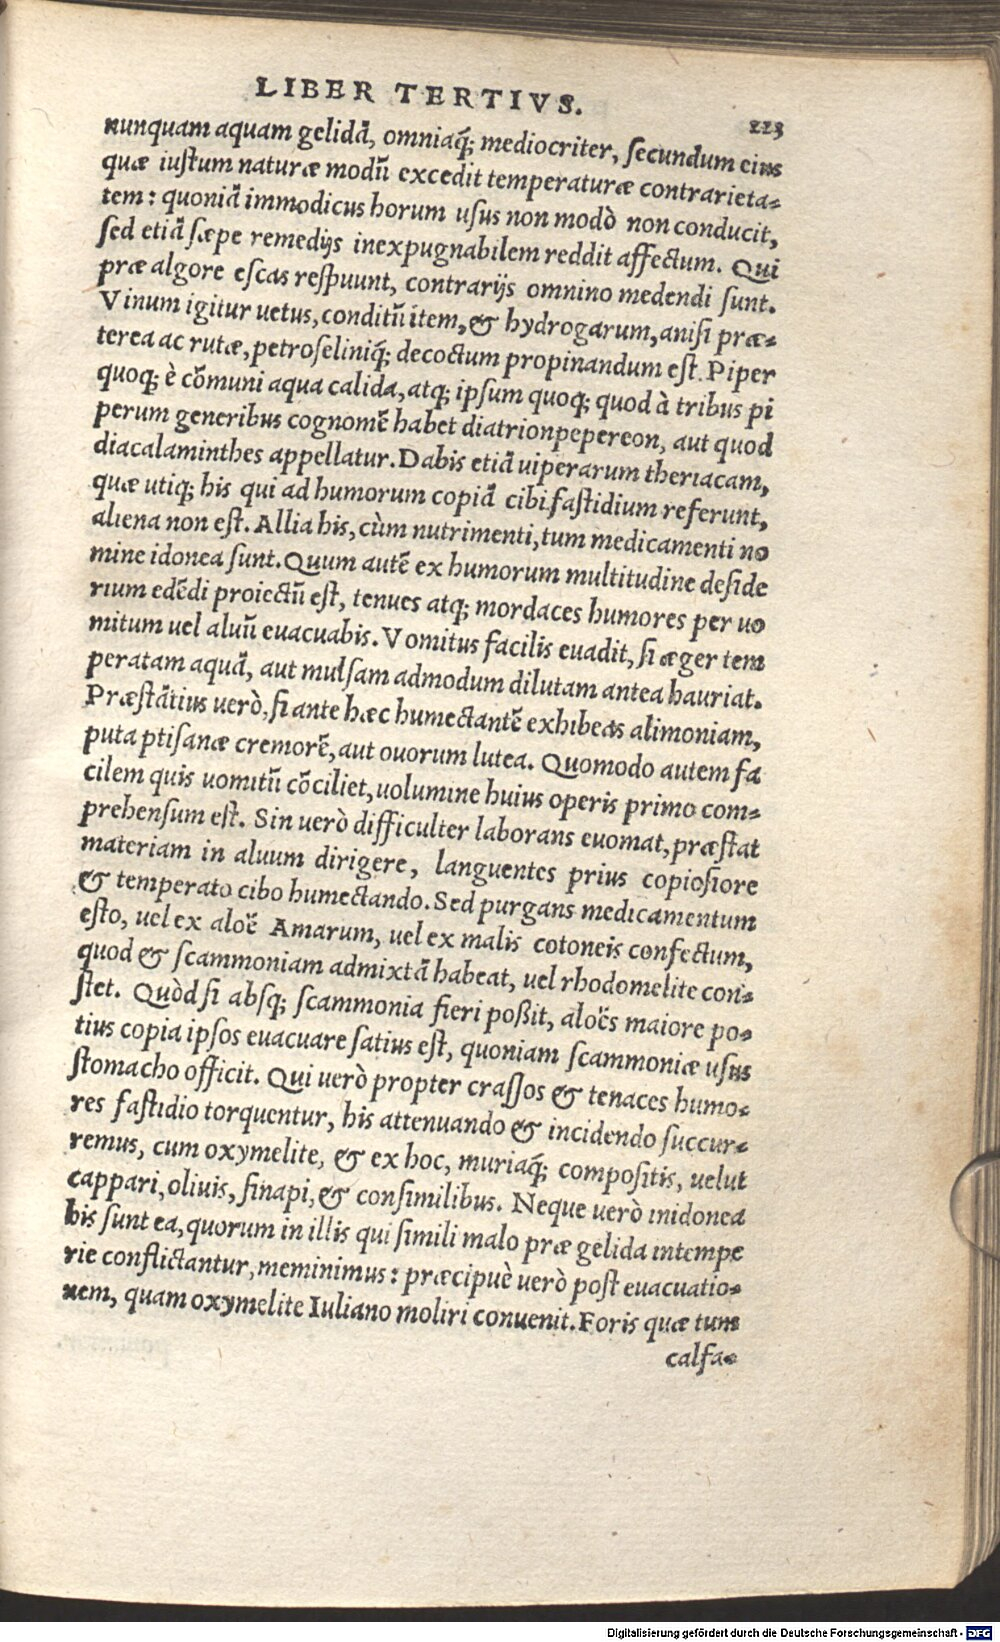 LIBER TERTIVS.
223
nunquam aquam gelidā, omniaq́; mediocriter, ſecundum eius
quæ iuſtum naturæ modū excedit temperaturæ contrarieta-
tem: quoniā immodicus horum uſus non modò non conducit,
ſed etiā ſæpe remedijs inexpugnabilem reddit affectum. Qui
præ algore eſcas reſpuunt, contrarijs omnino medendi ſunt.
Vinum igitur uetus, conditū item, & hydrogarum, aniſi præ-
terea ac rutæ, petroſeliniq́; decoctum propinandum eſt. Piper
quoq; è cōmuni aqua calida, atq; ipſum quoq; quod à tribus pi
perum generibus cognomē habet diatrionpepereon, aut quod
diacalaminthes appellatur. Dabis etiā uiperarum theriacam,
quæ utiq; his qui ad humorum copiā cibi faſtidium referunt,
aliena non eſt. Allia his, cùm nutrimenti, tum medicamenti no
mine idonea ſunt. Quum autē ex humorum multitudine deſide
rium edēdi proiectū eſt, tenues atq; mordaces humores per uo
mitum uel aluū euacuabis. Vomitus facilis euadit, ſi æger tem
peratam aquā, aut mulſam admodum dilutam antea hauriat.
Præſtātius uerò, ſi ante hæc humectantē exhibeas alimoniam,
puta ptiſanæ cremorē, aut ouorum lutea. Quomodo autem fa
cilem quis uomitū cōciliet, uolumine huius operis primo com-
prehenſum eſt. Sin uerò difficulter laborans euomat, præſtat
materiam in aluum dirigere, languentes prius copioſiore
& temperato cibo humectando. Sed purgans medicamentum
eſto, uel ex aloë Amarum, uel ex malis cotoneis confectum,
quod & ſcammoniam admixtā habeat, uel rhodomelite con-
ſtet. Quòd ſi abſq; ſcammonia fieri poßit, aloës maiore po-
tius copia ipſos euacuare ſatius eſt, quoniam ſcammoniæ uſus
ſtomacho officit. Qui uerò propter craſſos & tenaces humo-
res faſtidio torquentur, his attenuando & incidendo ſuccur-
remus, cum oxymelite, & ex hoc, muriaq́; compoſitis, uelut
cappari, oliuis, ſinapi, & conſimilibus. Neque uerò inidonea
his ſunt ea, quorum in illis qui ſimili malo præ gelida intempe
rie conflictantur, meminimus: præcipuè uerò poſt euacuatio-
nem, quam oxymelite Iuliano moliri conuenit. Foris quæ tum
calfa-
Digitalisierung gefördert durch die Deutsche Forschungsgemeinschaft - DFG